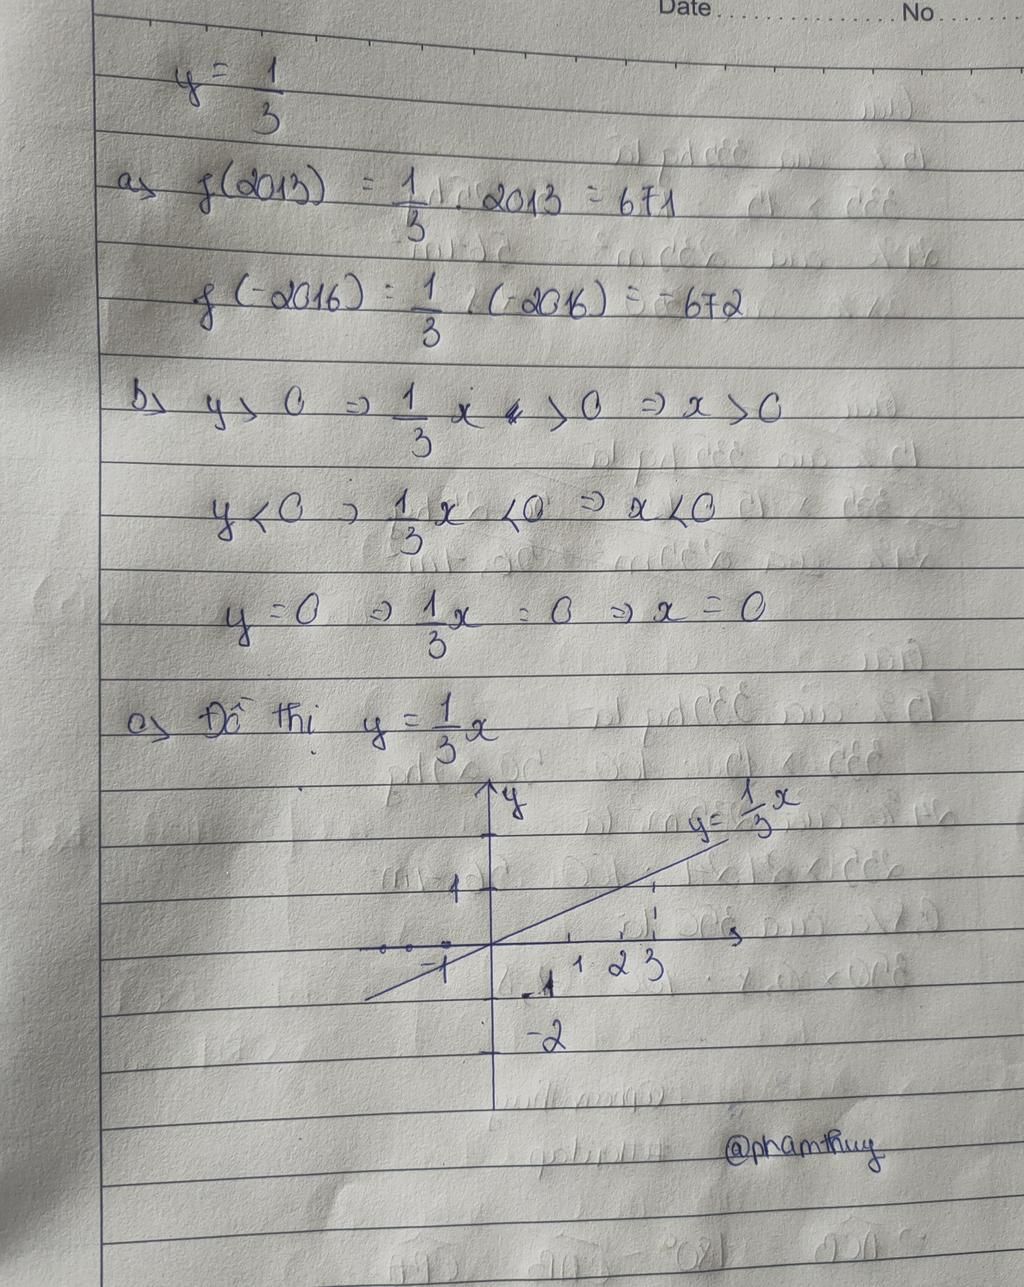 Date.................No......
y = 1/3
a) f(2013) = 1/3 . 2013 = 671
f(-2016) = 1/3 . (-2016) = -672
b) y > 0 ⇒ 1/3 x > 0 ⇒ x > 0
y < 0 ⇒ 1/3 x < 0 ⇒ x < 0
y = 0 ⇒ 1/3 x = 0 ⇒ x = 0
c) Đồ thị y = 1/3 x
y
y = 1/3 x
1
-1 1 2 3
-1
-2
@phamthuy